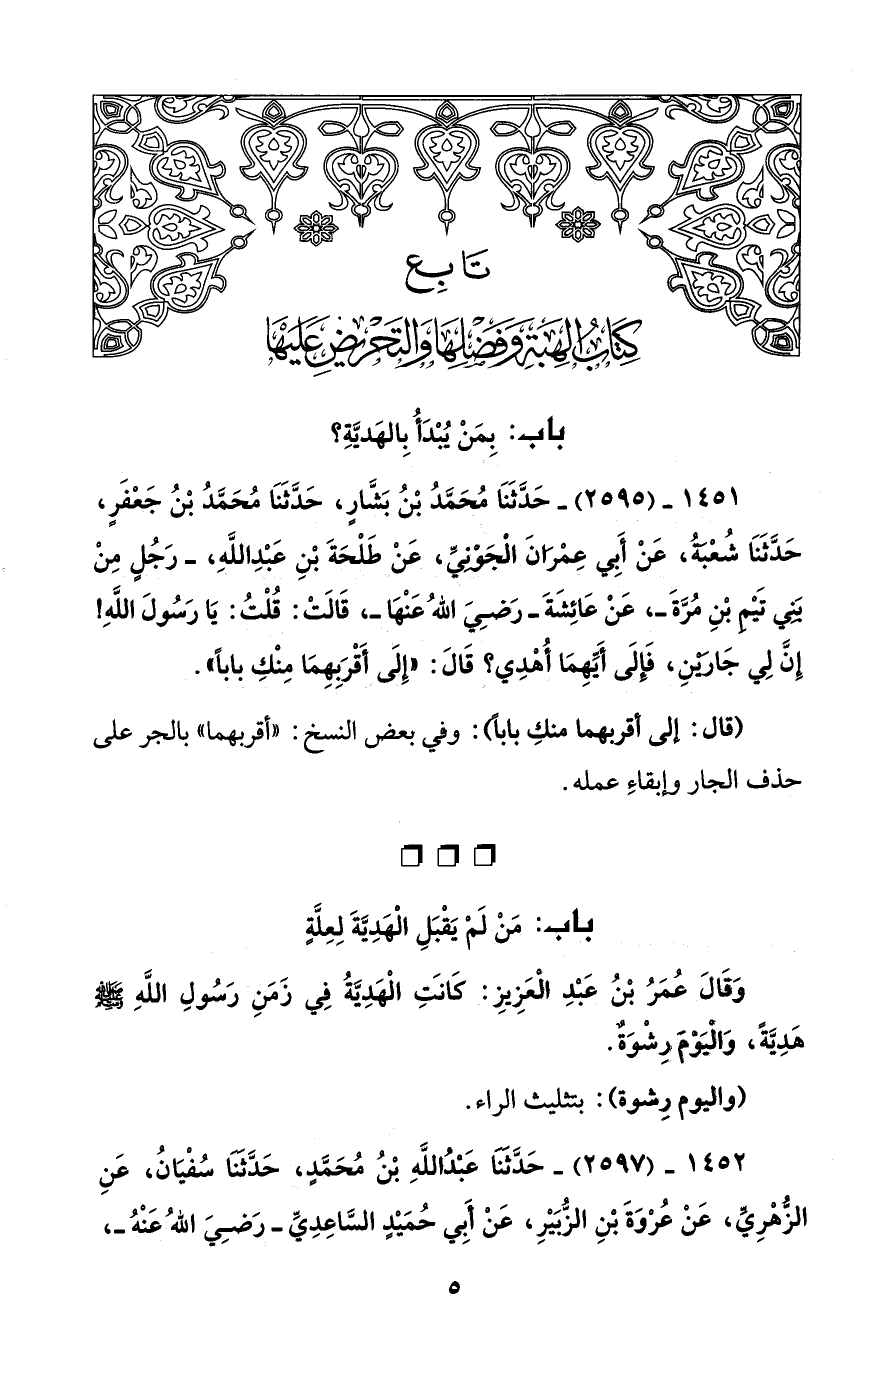 تابع
كِتَابُ الهِبَةِ وَفَضْلِهَا وَالتَّحْرِيضِ عَلَيْهَا
باب: بِمَنْ يُبْدَأُ بِالهَدِيَّةِ؟
١٤٥١ ـ (٢٥٩٥) ـ حَدَّثَنَا مُحَمَّدُ بْنُ بَشَّارٍ، حَدَّثَنَا مُحَمَّدُ بْنُ جَعْفَرٍ،
حَدَّثَنَا شُعْبَةُ، عَنْ أَبِي عِمْرَانَ الْجَوْنِيِّ، عَنْ طَلْحَةَ بْنِ عَبْدِاللَّهِ، ـ رَجُلٍ مِنْ
بَنِي تَيْمِ بْنِ مُرَّةَ ـ، عَنْ عَائِشَةَ ـ رَضِيَ اللهُ عَنْهَا ـ، قَالَتْ: قُلْتُ: يَا رَسُولَ اللَّهِ!
إِنَّ لِي جَارَيْنِ، فَإِلَى أَيِّهِمَا أُهْدِي؟ قَالَ: «إِلَى أَقْرَبِهِمَا مِنْكِ باباً».
(قال: إلى أقربهما منكِ باباً): وفي بعض النسخ: «أقربهما» بالجر على
حذف الجار وإبقاءِ عمله.
باب: مَنْ لَمْ يَقْبَلِ الْهَدِيَّةَ لِعِلَّةٍ
وَقَالَ عُمَرُ بْنُ عَبْدِ الْعَزِيزِ: كَانَتِ الْهَدِيَّةُ فِي زَمَنِ رَسُولِ اللَّهِ ﷺ
هَدِيَّةً، وَالْيَوْمَ رِشْوَةٌ.
(واليوم رِشوة): بتثليث الراء.
١٤٥٢ ـ (٢٥٩٧) ـ حَدَّثَنَا عَبْدُاللَّهِ بْنُ مُحَمَّدٍ، حَدَّثَنَا سُفْيَانُ، عَنِ
الزُّهْرِيِّ، عَنْ عُرْوَةَ بْنِ الزُّبَيْرِ، عَنْ أَبِي حُمَيْدٍ السَّاعِدِيِّ ـ رَضِيَ اللهُ عَنْهُ ـ،
٥